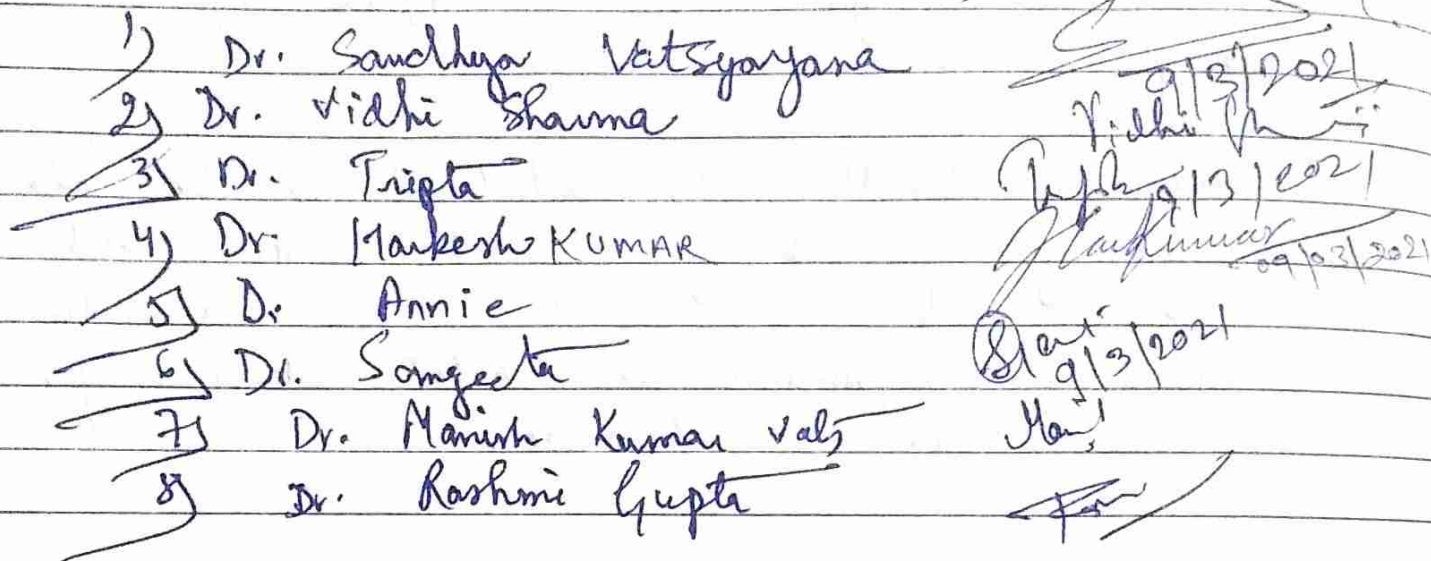 1) Dr. Sandhya Vatsyayana
9/3/2021
2) Dr. Vidhi Sharma Vidhi
3) Dr. Tripta 9/3/2021
4) Dr. Harkesh KUMAR 09/03/2021
5) D. Annie
6) Dr. Sangeeta 9/3/2021
7) Dr. Manish Kumar Vats
8) Dr. Rashmi Gupta